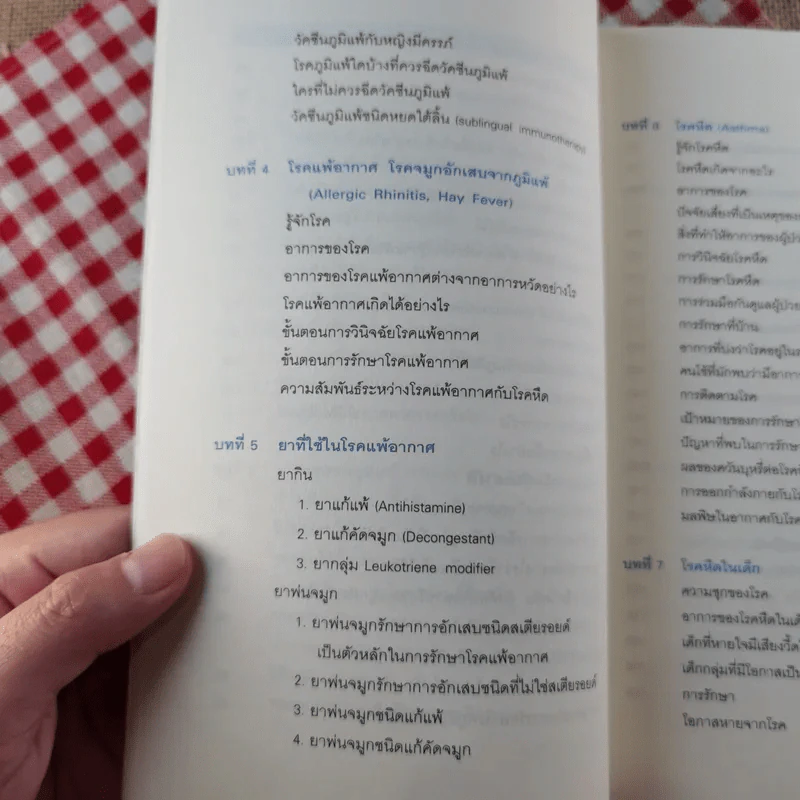 วัคซีนภูมิแพ้กับหญิงมีครรภ์
โรคภูมิแพ้ใดบ้างที่ควรฉีดวัคซีนภูมิแพ้
ใครที่ไม่ควรฉีดวัคซีนภูมิแพ้
วัคซีนภูมิแพ้ชนิดหยดใต้ลิ้น (sublingual immunotherapy
บทที่ 4 โรคแพ้อากาศ โรคจมูกอักเสบจากภูมิแพ้
(Allergic Rhinitis, Hay Fever)
รู้จักโรค
อาการของโรค
อาการของโรคแพ้อากาศต่างจากอาการหวัดอย่างไร
โรคแพ้อากาศเกิดได้อย่างไร
ขั้นตอนการวินิจฉัยโรคแพ้อากาศ
ขั้นตอนการรักษาโรคแพ้อากาศ
ความสัมพันธ์ระหว่างโรคแพ้อากาศกับโรคหืด
บทที่ 5 ยาที่ใช้ในโรคแพ้อากาศ
ยากิน
1. ยาแก้แพ้ (Antihistamine)
2. ยาแก้คัดจมูก (Decongestant)
3. ยากลุ่ม Leukotriene modifier
ยาพ่นจมูก
1. ยาพ่นจมูกรักษาการอักเสบชนิดสเตียรอยด์
เป็นตัวหลักในการรักษาโรคแพ้อากาศ
2. ยาพ่นจมูกรักษาการอักเสบชนิดที่ไม่ใช่สเตียรอยด์
3. ยาพ่นจมูกชนิดแก้แพ้
4. ยาพ่นจมูกชนิดแก้คัดจมูก
บทที่ 6 โรคหืด (Asthma)
รู้จักโรคหืด
โรคหืดเกิดจากอะไร
อาการของโรค
ปัจจัยเสี่ยงที่เป็นเหตุของ
สิ่งที่ทำให้อาการของผู้ป่ว
การวินิจฉัยโรคหืด
การรักษาโรคหืด
การร่วมมือกันดูแลผู้ป่วย
การรักษาที่บ้าน
อาการที่บ่งว่าโรคอยู่ใน
คนไข้ที่มักพบว่ามีอากา
การติดตามโรค
เป้าหมายของการรักษา
ปัญหาที่พบในการรักษา
ผลของควันบุหรี่ต่อโรค
การออกกำลังกายกับโ
มลพิษในอากาศกับโร
บทที่ 7 โรคหืดในเด็ก
ความชุกของโรค
อาการของโรคหืดในเด็
เด็กที่หายใจมีเสียงวี้ด
เด็กกลุ่มที่มีโอกาสเป็น
การรักษา
โอกาสหายจากโรค